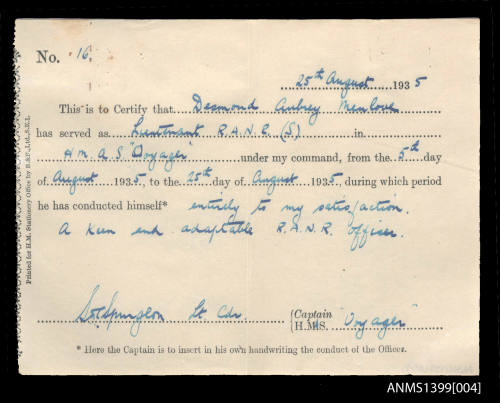 No. 16.
25th August 1935
This is to Certify that Desmond Aubrey Menlove
has served as Lieutenant R.A.N.R. (S) in
H.M.A.S "Voyager" under my command, from the 5th day
of August 1935, to the 25th day of August 1935, during which period
he has conducted himself* entirely to my satisfaction.
A keen and adaptable R.A.N.R. officer.
Spurgeon Lt Cdr. {Captain H.M.S. "Voyager"
* Here the Captain is to insert in his own handwriting the conduct of the Officer.
Printed for H.M. Stationery Office by
ANMS1399[004]